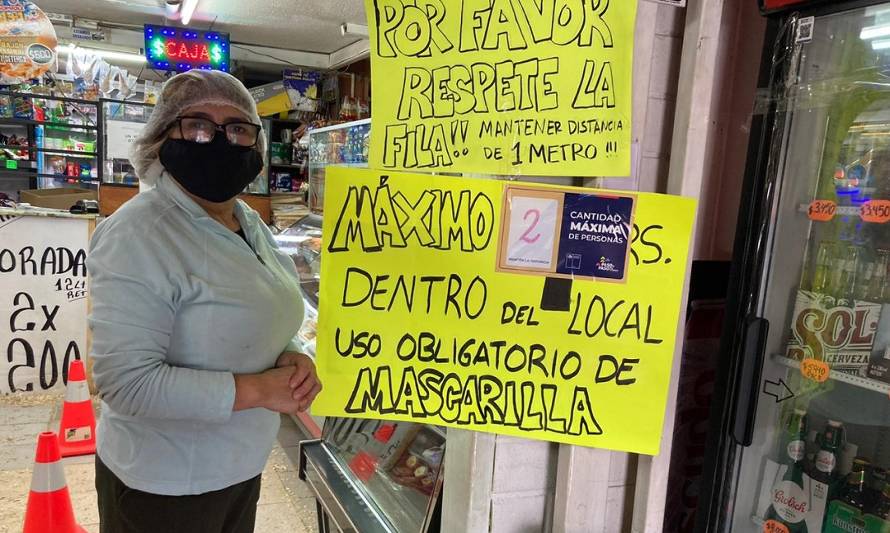 CAJA
$600
POR FAVOR
RESPETE LA
FILA!! MANTENER DISTANCIA
DE 1 METRO !!!
MÁXIMO
2
CANTIDAD
MÁXIMA
DE PERSONAS
RS.
DENTRO DEL LOCAL
USO OBLIGATORIO DE
MASCARILLA
ORADA
2 x
200
$3.450
SOL
CERVEZA
Grolsch